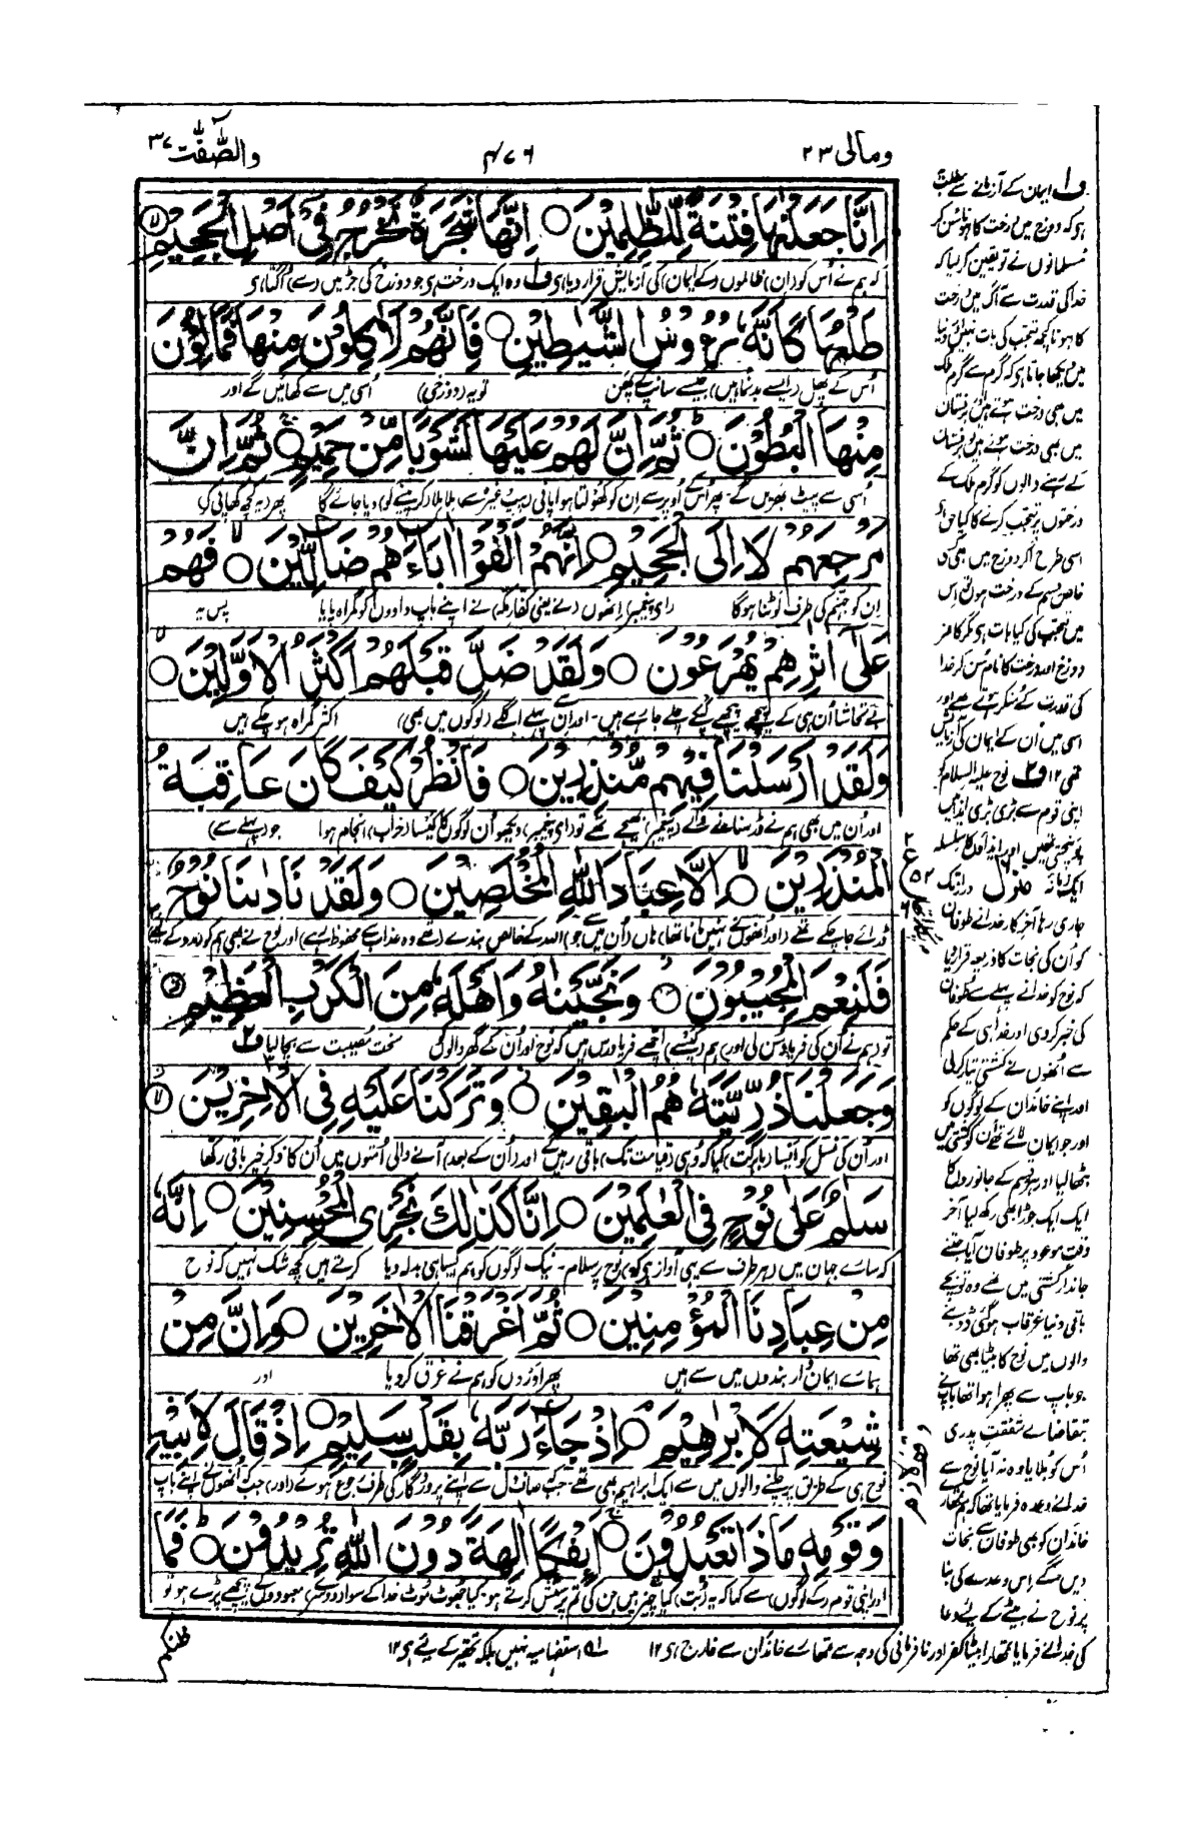 ومالی ۲۳
۷۶
والصّٰفّٰت ۳۷
اِنَّا جَعَلْنٰهَا فِتْنَةً لِّلظّٰلِمِیْنَ ○ اِنَّهَا شَجَرَةٌ تَخْرُجُ فِیْۤ اَصْلِ الْجَحِیْمِ
کہ ہم نے اُس کو (ان) ظالموں (کے ایمان) کی آزمایش قرار دیا ہی ف۱ وہ ایک درخت ہی جو دوزخ کی جڑ میں (سے) اُگتا ہی
طَلْعُهَا كَاَنَّهٗ رُءُوْسُ الشَّیٰطِیْنِ ○ فَاِنَّهُمْ لَاٰكِلُوْنَ مِنْهَا فَمَالِـُٔوْنَ
اُس کے پھل (ایسے بدنما ہیں) جیسے سانپ کے پھن تو یہ (دوزخی) اُسی میں سے کھائیں گے اور
مِنْهَا الْبُطُوْنَ ○ ثُمَّ اِنَّ لَهُمْ عَلَیْهَا لَشَوْبًا مِّنْ حَمِیْمٍ ○ ثُمَّ اِنَّ
اُسی سے پیٹ بھریں گے۔ پھر اُس کے اُوپر سے اِن کو کھولتا ہوا پانی ملا ملا کر پینے کو دیا جائے گا پھر
مَرْجِعَهُمْ لَاۡ اِلَی الْجَحِیْمِ ○ اِنَّهُمْ اَلْفَوْا اٰبَآءَهُمْ ضَآلِّیْنَ ○ فَهُمْ
اِن کو جہنم کی طرف لوٹنا ہوگا (ای پیغمبر) اِنھوں (نے یعنی کفار مکہ) نے اپنے باپ دادوں کو گمراہ پایا پس یہ
عَلٰۤی اٰثٰرِهِمْ یُهْرَعُوْنَ ○ وَلَقَدْ ضَلَّ قَبْلَهُمْ اَكْثَرُ الْاَوَّلِیْنَ ○
بے تحاشا اُن ہی کے پیچھے پیچھے لپکے چلے جارہے ہیں۔ اور اِن سے پہلے اگلے (لوگوں میں بھی) اکثر گمراہ ہو چکے ہیں
وَلَقَدْ اَرْسَلْنَا فِیْهِمْ مُّنْذِرِیْنَ ○ فَانْظُرْ كَیْفَ كَانَ عَاقِبَةُ
اور اُن میں بھی ہم نے ڈر سنانے والے (پیغمبر) بھیجے تھے تو (ای پیغمبر) دیکھو اُن لوگوں کا کیسا (خراب) انجام ہوا جو (پہلے سے)
الْمُنْذَرِیْنَ ○ اِلَّا عِبَادَ اللّٰهِ الْمُخْلَصِیْنَ ○ وَلَقَدْ نَادٰىنَا نُوْحٌ
ڈرائے جاچکے تھے (اور اُنھوں نے نہیں مانا تھا) ہاں (اُن میں جو) اللہ کے خالص بندے (تھے وہ عذاب سے محفوظ رہے) اور نوح نے بھی ہم کو
فَلَنِعْمَ الْمُجِیْبُوْنَ ○ وَنَجَّیْنٰهُ وَاَهْلَهٗ مِنَ الْكَرْبِ الْعَظِیْمِ
تو (ہم نے اُن کی فریاد سُن لی اور) ہم (کیسے) اچھے فریاد رس ہیں کہ نوح اور اُن کے گھر والوں کو سخت مصیبت سے بچا لیا ف۲
وَجَعَلْنَا ذُرِّیَّتَهٗ هُمُ الْبٰقِیْنَ ○ وَتَرَكْنَا عَلَیْهِ فِی الْاٰخِرِیْنَ
اور اُن کی نسل کو (ایسا بابرکت) کیا کہ وُہی (قیامت تک) باقی رہیں گے اور (اُن کے بعد) آنے والی اُمتوں میں اُن کا ذکر خیر باقی رکھا
سَلٰمٌ عَلٰی نُوْحٍ فِی الْعٰلَمِیْنَ ○ اِنَّا كَذٰلِكَ نَجْزِی الْمُحْسِنِیْنَ ○ اِنَّهٗ
کہ سارے جہان میں (ہر طرف سے یہی آواز ہی کہ) نوح پر سلام۔ نیک لوگوں کو ہم ایسا ہی بدلہ دیا کرتے ہیں کچھ شک نہیں کہ نوح
مِنْ عِبَادِنَا الْمُؤْمِنِیْنَ ○ ثُمَّ اَغْرَقْنَا الْاٰخَرِیْنَ ○ وَاِنَّ مِنْ
ہمارے ایمان دار بندوں میں سے ہیں پھر اَوروں کو ہم نے غرق کر دیا اور
شِیْعَتِهٖ لَاِبْرٰهِیْمَ ○ اِذْ جَآءَ رَبَّهٗ بِقَلْبٍ سَلِیْمٍ ○ اِذْ قَالَ لِاَبِیْهِ
نوح ہی کے طریق پر چلنے والوں میں سے ایک ابراہیم بھی تھے جب صاف دل سے اپنے پروردگار کی طرف رجوع ہوئے (اور) جب اُنھوں نے اپنے باپ
وَقَوْمِهٖ مَاذَا تَعْبُدُوْنَ ○ اَئِفْكًا اٰلِهَةً دُوْنَ اللّٰهِ تُرِیْدُوْنَ ○ فَمَا
اور اپنی قوم (کے لوگوں) سے کہا کہ یہ (بُت) کیا چیز ہیں جن کی تم پرستش کرتے ہو۔ کیا جھوٹ موٹ خدا کے سوا دوسرے معبودوں کے پیچھے پڑے ہو تو
ف۱ ایمان کے آزمانے سے مطلب
ہی کہ دوزخ میں درخت کا ہونا سُن کر
مسلمانوں نے تو یقین کر لیا کہ
خدا کی قدرت سے آگ میں درخت
کا ہونا کچھ تعجب کی بات نہیں دنیا
میں دیکھا جاتا ہی کہ گرم سے گرم ملک
میں بھی درخت ہوتے ہیں
میں بھی درخت ہوتے ہیں
کے رہنے والوں کو گرم ملک کے
درختوں پر تعجب کرنے کا کیا حق ہی
اسی طرح اگر دوزخ میں بھی کسی
خاص قسم کے درخت ہوں تو اِس
میں تعجب کی کیا بات ہی مگر کافر
دوزخ اور درخت کا نام سُن کر خدا
کی قدرت کے منکر ہوتے تھے اور
اسی میں اُن کے ایمان کی آزمایش
تھی ۱۲ ف۲ نوح علیہ السلام کو
اپنی قوم سے بڑی بڑی ایذائیں
پہنچتی تھیں اور ایذاؤں کا سلسلہ
ایک زمانہ دراز تک
منزل ۶
جاری رہا آخر کار خدا نے طوفان
کو اُن کی نجات کا ذریعہ قرار دیا
کہ نوح کو خدا نے پہلے سے طوفان
کی خبر کر دی اور خدا ہی کے حکم
سے اُنھوں نے کشتی تیار کر لی
اور اپنے خاندان کے لوگوں کو
اور جو ایمان لائے تھے اُن کو کشتی میں
بٹھا لیا اور ہر قسم کے جانوروں کا
ایک ایک جوڑا بھی رکھ لیا آخر
وقت موعود پر طوفان آیا جتنے
جاندار کشتی میں تھے وہ تو بچے
باقی دنیا غرقاب ہوگئی ڈوبنے
والوں میں نوح کا بیٹا بھی تھا
جو باپ سے پھرا ہوا تھا باپ نے
بتقاضائے شفقتِ پدری
اُس کو بلایا وہ نہ آیا نوح سے
خدا نے وعدہ فرمایا تھا کہ ہم تمھارے
خاندان کو بھی طوفان سے نجات
دیں گے اِس وعدے کی بنا
پر نوح نے بیٹے کے لیے دعا
کی خدا نے فرمایا تمھارا بیٹا کفر اور نافرمانی کی وجہ سے تمھارے خاندان سے خارج ہی ۱۲
استفہامیہ نہیں بلکہ تحقیر کے لیے ہی ۱۲
ظنکم
وقف لازم